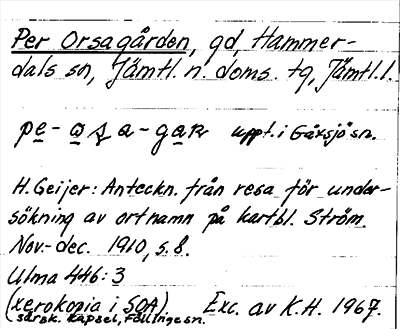 Per Orsagården, gd, Hammer-
dals sn, Jämtl. n. doms. tg, Jämtl. l.
uppt. i Gåxsjö sn.
H. Geijer: Anteckn. från resa för under-
sökning av ortnamn på kartbl. Ström
Nov.-dec. 1910, s. 8.
Ulma 446: 3
(xerokopia i SOA) Exc. av K.H. 1967.
särsk. kapsel, Föllinge sn.